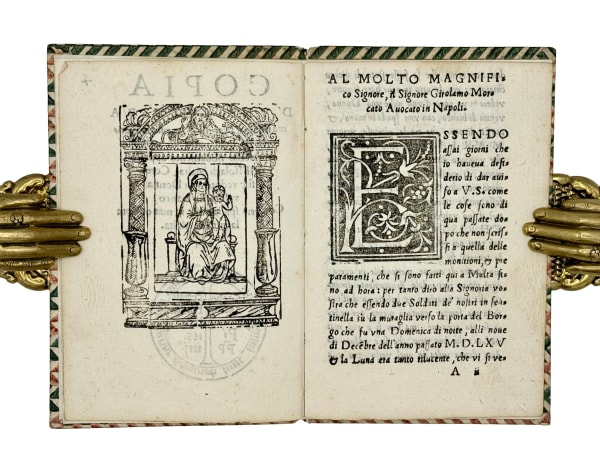 COPIA
AL MOLTO MAGNIFI-
co Signore, il Signore Girolamo Mor-
cato Auocato in Napoli.
ESSENDO
assai giorni che
io haueua desi-
derio di dar aui-
so a V.S. come
le cose sono di
qua passate do-
po che non scrissi
fu quella delle
monitioni, & pre
paramenti, che si sono fatti qui a Malta fi-
no ad hora: per tanto dirò alla Signoria vo-
stra che essendo due Soldati de' nostri in sen-
tinella sù la muraglia verso la porta del Bor-
go che fu vna Domenica di notte, alli noue
di Decẽbre dell'anno passato M. D. LXV
& la Luna era tanto rilucente, che vi si ve-
A ii